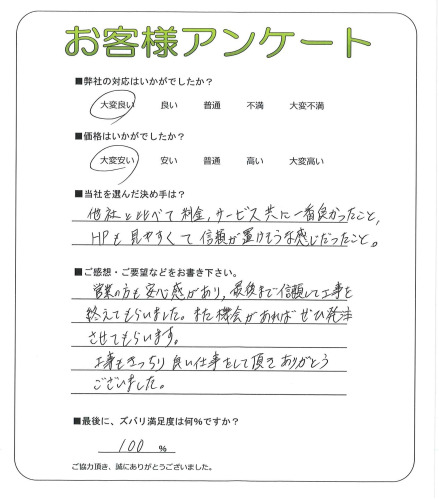 お客様アンケート
■弊社の対応はいかがでしたか？
大変良い 良い 普通 不満 大変不満
■価格はいかがでしたか？
大変安い 安い 普通 高い 大変高い
■当社を選んだ決め手は？
他社と比べて料金，サービス共に一番良かったこと，
HPも見やすくて信頼が置けそうな感じだったこと。
■ご感想・ご要望などをお書き下さい。
営業の方も安心感があり，最後まで信頼して工事を
終えてもらいました。また機会があればぜひ発注
させてもらいます。
工事もきっちり良い仕事をして頂きありがとう
ございました。
■最後に、ズバリ満足度は何％ですか？
100 ％
ご協力頂き、誠にありがとうございました。